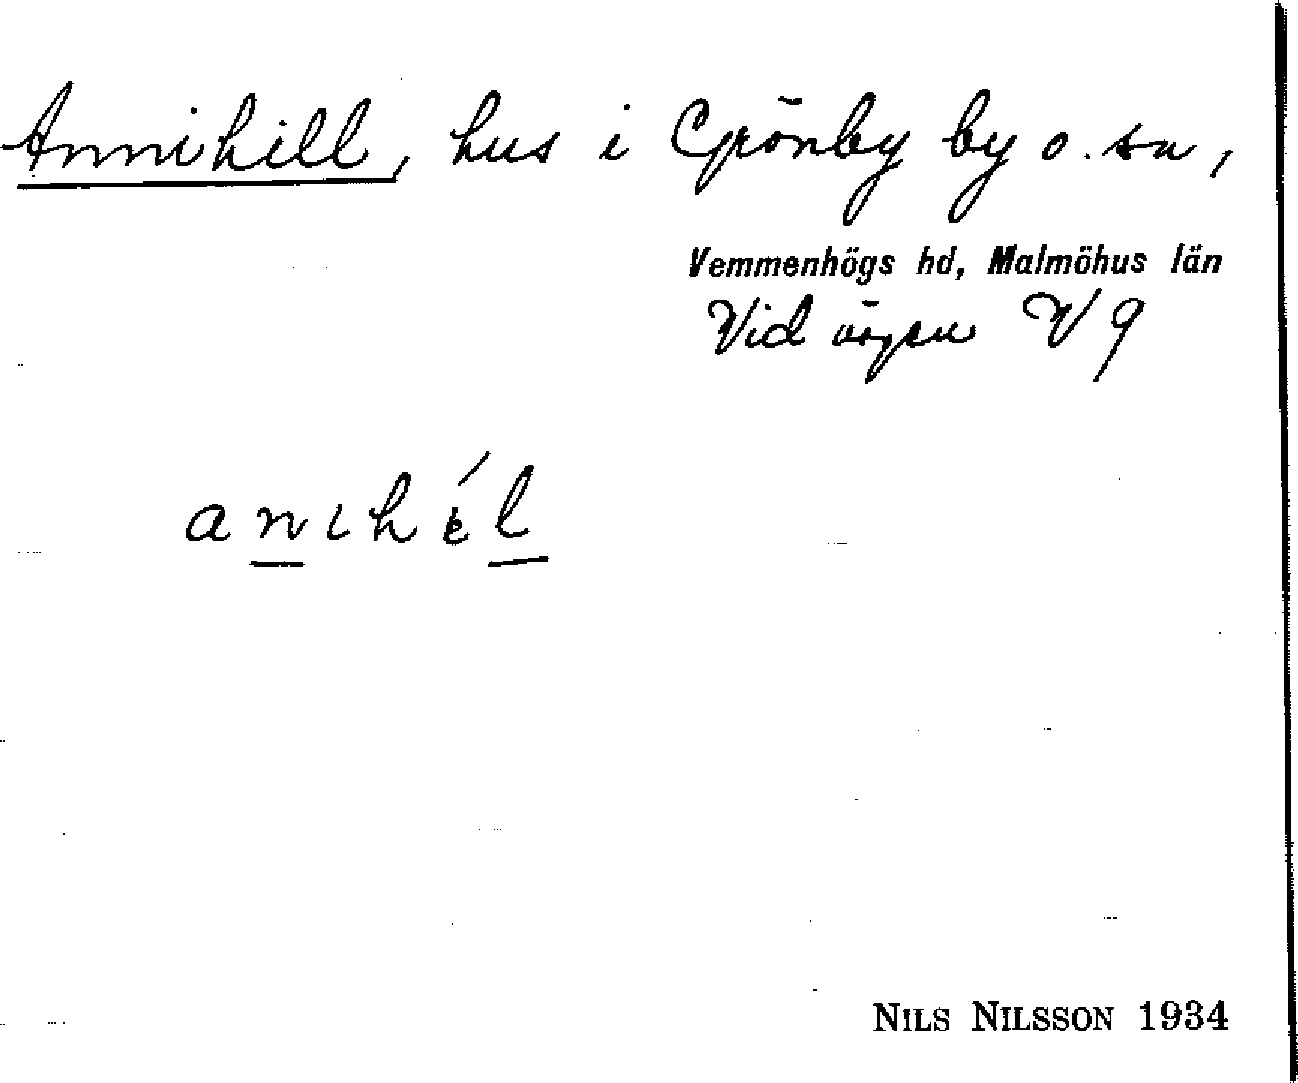 Annihill, hus i Grönby by o. sn,
Vemmenhögs hd, Malmöhus län
Vid vägen V 9
anıhél
NILS NILSSON 1934